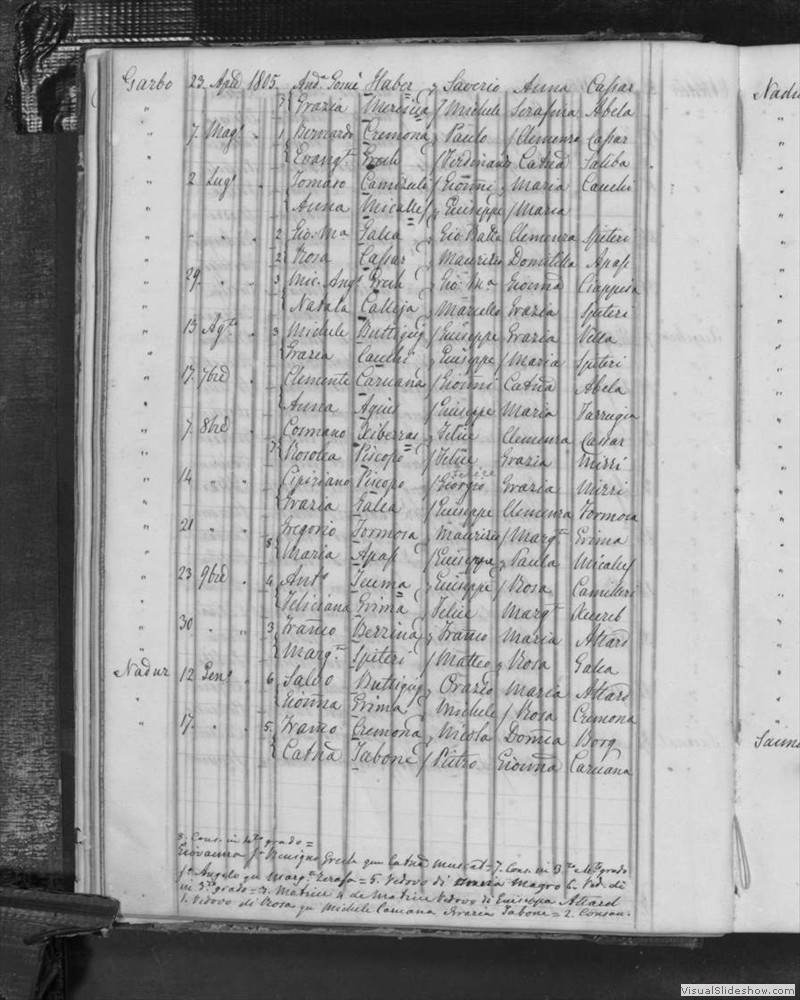 Garbo 23 Aple 1805 Anda Gomi Haber Saverio Anna Cassar
Grazia Mercieca Michele Serafina Abela
" 7. Maggo " 1 Bernardo Cremona Paulo Clemenza Cassar
Evangta Grech Ferdinando Catna Saliba
" 2 Lugo Tomaso Camenzuli Gionni Maria Cauchi
Anna Micallef Giuseppe Maria
" " " 2 Gio. Ma Galea Gio Batta Clemenza Spiteri
2 Rosa Cassar Maurizio Domitilla Apap
" 29. " " 3 Mic. Angs Grech Gio. Ma Gionna Ciappisa
Natala Calleja Marcello Grazia Spiteri
" 13 Agto " 3 Michele Buttigieg Giuseppe Grazia Vella
Grazia Cauchi Giuseppe Maria Spiteri
" 17. 7bre " Clemente Caruana Gionni Catna Abela
Anna Agius Giuseppe Maria Farrugia
" 7. 8bre " Cosmano Xiberras Felice Clemenza Cassar
7 Rosolea Piscopo Felice Grazia Mizzi
" 14 " " Cipiriano Piscopo Giorgio Grazia Mizzi
Grazia Galea Giuseppe Clemenza Formosa
" 21 " " Gregorio Formosa Maurizio Margta Grima
8 Maria Apap Giuseppe Paula Micallef
" 23 9bre " 4 Anto Teuma Giuseppe Rosa Camilleri
Feliciana Grima Felice Margta Xuereb
" 30 " " 3 Franco Berrina Franco Maria Attard
Margta Spiteri Matteo Rosa Galea
Nadur 12 Geno " 6 Salvo Buttigieg Orazio Maria Attard
Gionna Grima Michele Rosa Cremona
" 17. " " 5 Franco Cremona Nicola Domca Borg
Catna Tabone Pietro Gionna Caruana
8. Cons. in 4to grado =
Giovanna fa Benigno Grech qm Catna Muscat = 7. Cons. in 3zo e 4to grado
fa Angelo qm Margta Zerafa = 5. Vedovo di Maria Magro 6. Ved. di
in 3zo grado = 3. Matrice 4 de Matrice Vedovo di Giuseppa Attard
1. Vedovo di Rosa qm Michele Caruana Grazia Tabone = 2. Consan.
Nadur
VisualSlideshow.com